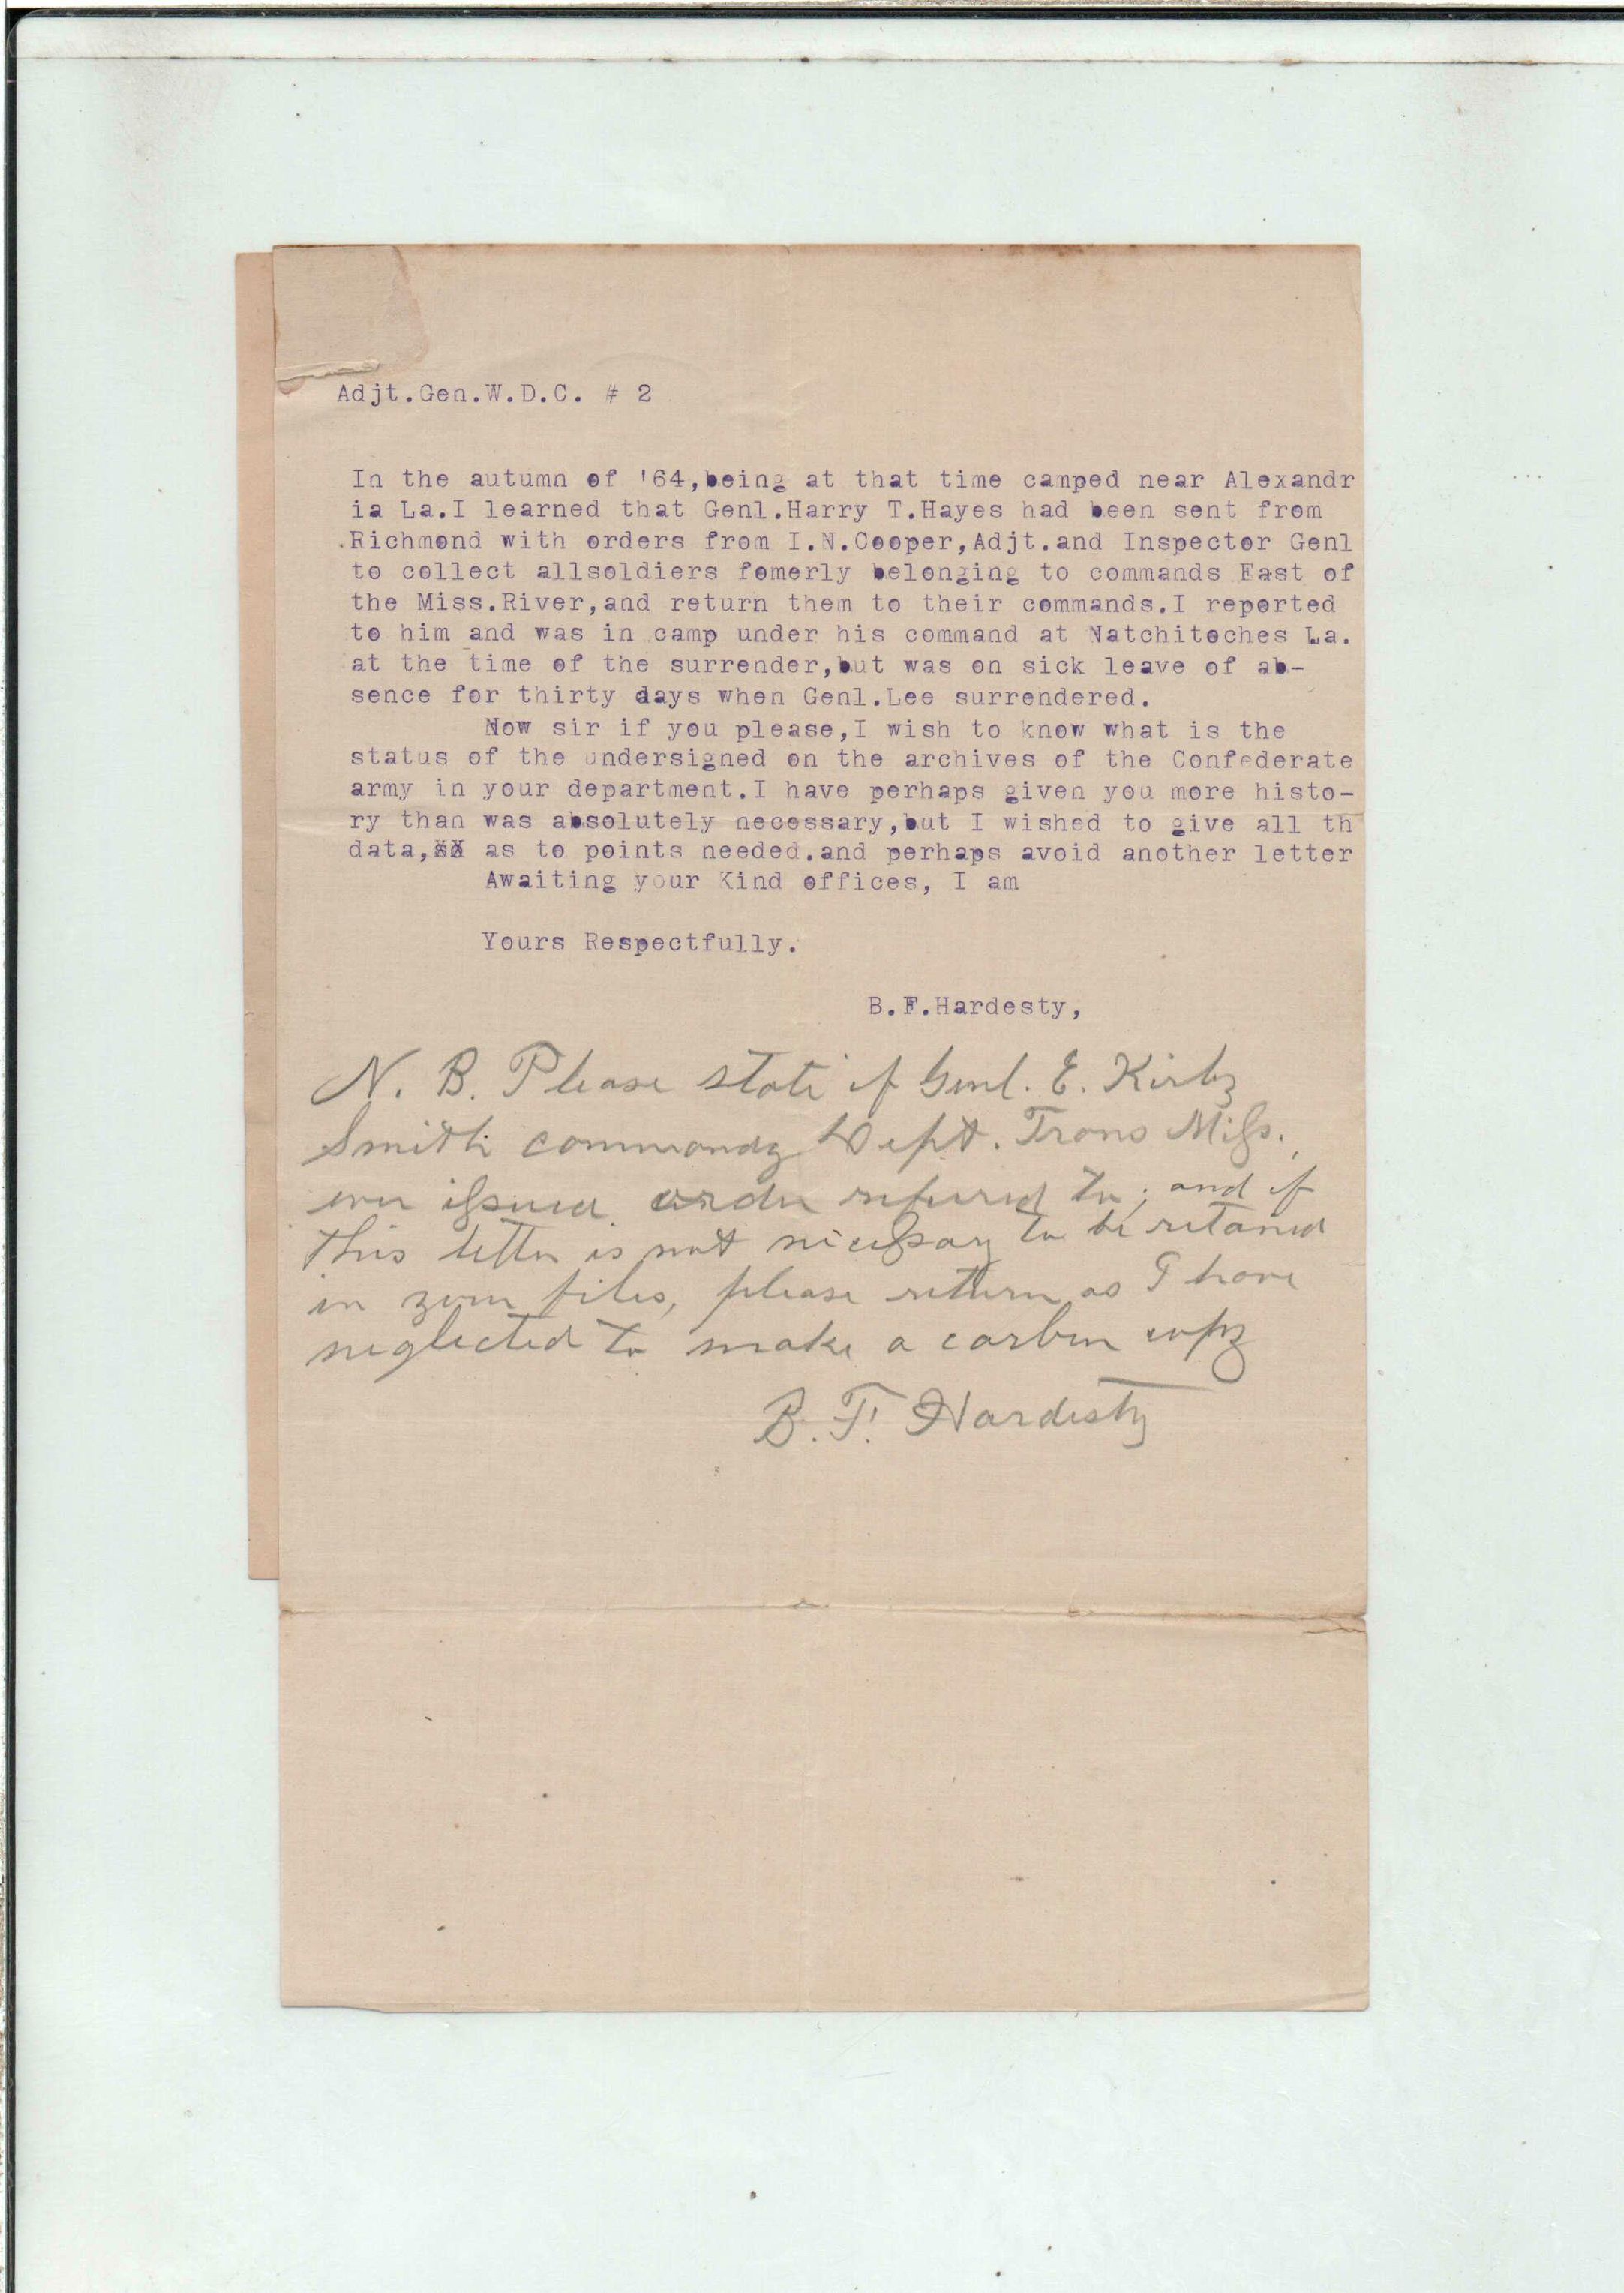 Adjt.Gen.W.D.C. # 2
In the autumn of '64,being at that time camped near Alexandr
ia La.I learned that Genl.Harry T.Hayes had been sent from
Richmond with orders from I.N.Cooper,Adjt.and Inspector Genl
to collect allsoldiers fomerly belonging to commands East of
the Miss.River,and return them to their commands.I reported
to him and was in camp under his command at Natchitoches La.
at the time of the surrender,but was on sick leave of ab-
sence for thirty days when Genl.Lee surrendered.
Now sir if you please,I wish to know what is the
status of the undersigned on the archives of the Confederate
army in your department.I have perhaps given you more histo-
ry than was absolutely necessary,but I wished to give all th
data, as to points needed.and perhaps avoid another letter
Awaiting your Kind offices, I am
Yours Respectfully.
B.F.Hardesty,
N. B. Please state if Genl. E. Kirby
Smith commandg Dept. Trans Miss.,
ever issued order referred to; and if
this letter is not necessary to be retained
in your files, please return as I have
neglected to make a carbon copy
B. F. Hardesty